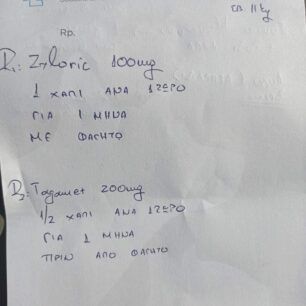 ΣΒ. 11 kg
Rp.
R1: Zyloric 100mg
1 ΧΑΠΙ ΑΝΑ 12ΩΡΟ
ΓΙΑ 1 ΜΗΝΑ
ΜΕ ΦΑΓΗΤΟ
R2: Tagamet 200mg
1/2 ΧΑΠΙ ΑΝΑ 12ΩΡΟ
ΓΙΑ 1 ΜΗΝΑ
ΠΡΙΝ ΑΠΟ ΦΑΓΗΤΟ